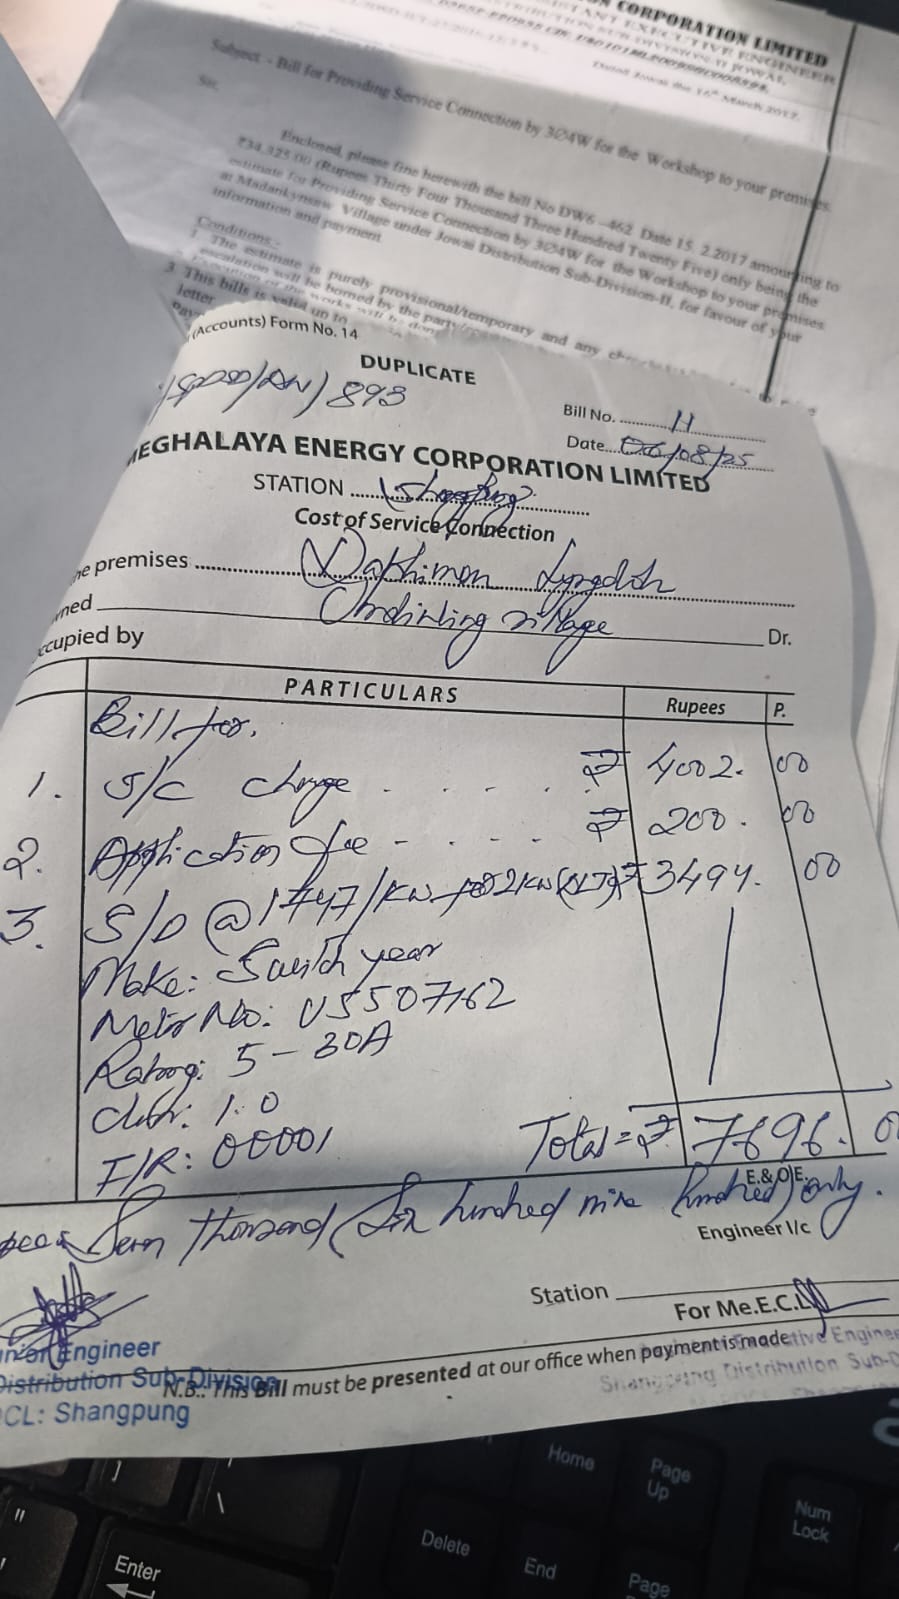 CORPORATION LIMITED
Subject :- Bill for Providing Service Connection by 3Ø4W for the Workshop to your premises.
Sir,
Enclosed, please fine herewith the bill No DW6 -462 Date 15. 2.2017 amounting to
₹34,325.00 (Rupees Thirty Four Thousand Three Hundred Twenty Five) only being the
estimate for Providing Service Connection by 3Ø4W for the Workshop to your premises
at Madankynsaw Village under Jowai Distribution Sub-Division-II, for favour of your
information and payment
Conditions:-
1 The estimate is purely provisional/temporary and any
escalation will be borned by the party
3 This bills is valid up to
letter
(Accounts) Form No. 14
DUPLICATE
893
Bill No. 11
Date 06/08/25
MEGHALAYA ENERGY CORPORATION LIMITED
STATION Shangpung
Cost of Service Connection
he premises Dakhimon Lyngdoh
wned village
Dr.
ccupied by
PARTICULARS Rupees P.
Bill for.
1. S/C charge ₹ 4002. 00
2. Application fee ₹ 200. 00
3. S/D @ 1747/KW for 2KW ₹ 3494. 00
Make: Switch
Meter No: U5507162
Rating: 5-30A
1.0
I/R: 00001
Total = ₹ 7696.
E.&O.E.
Seven Thousand Six hundred nine hundred only.
Engineer I/c
Station
For Me.E.C.L
Engineer
Distribution Sub-Division
CL: Shangpung
N.B.: This Bill must be presented at our office when payment is made
tive Engineer
Shangpung Distribution Sub-D
Home
Page Up
Num Lock
Delete
End
Page
Enter